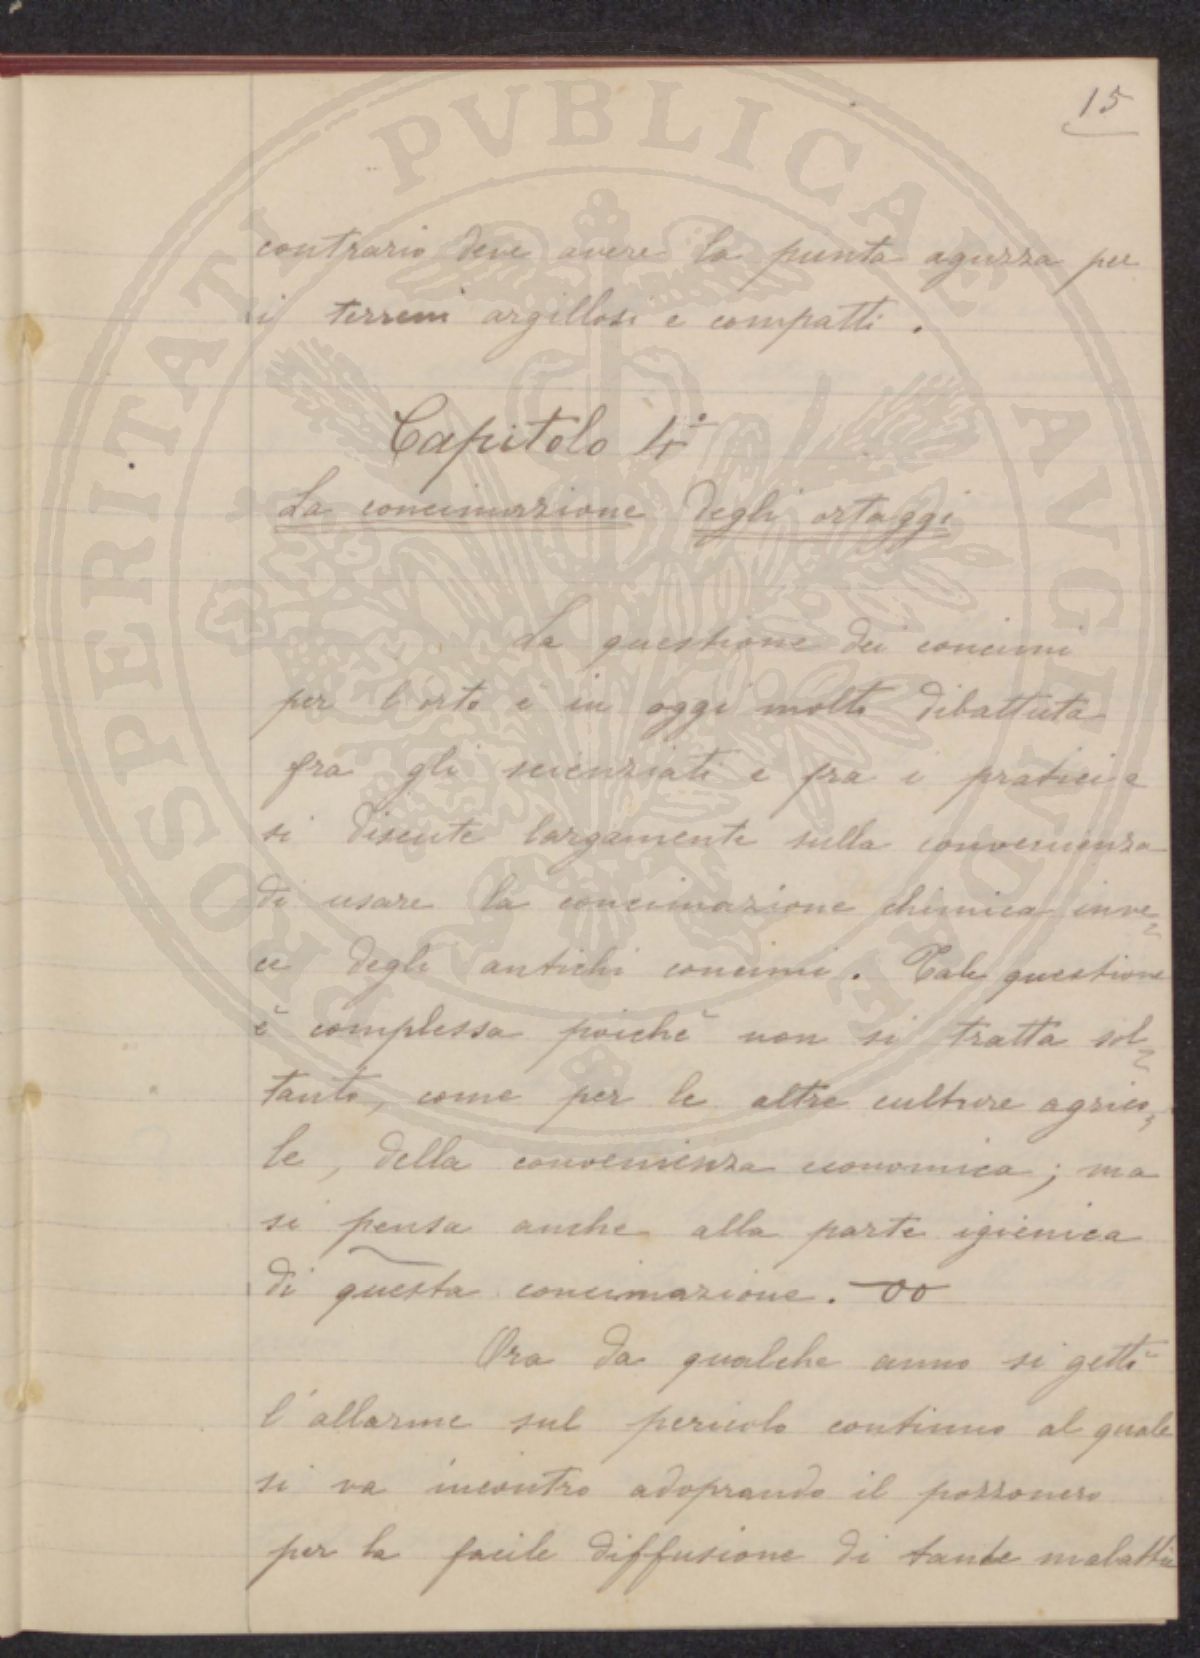 15
contrario deve avere la punta aguzza per
i terreni argillosi e compatti.
Capitolo 4º
La concimazione degli ortaggi
La questione dei concimi
per l'orto è in oggi molto dibattuta
fra gli scienziati e fra i pratici e
si discute largamente sulla convenienza
di usare la concimazione chimica inve=
ce degli antichi concimi. Tale questione
è complessa poichè non si tratta sol=
tanto, come per le altre culture agrico=
le, della convenienza economica; ma
si pensa anche alla parte igienica
di questa concimazione.
Ora da qualche anno si gettò
l'allarme sul pericolo continuo al quale
si va incontro adoprando il pozzonero
per la facile diffusione di tante malattie
PROSPERITATI PVBLICAE AVGENDAE